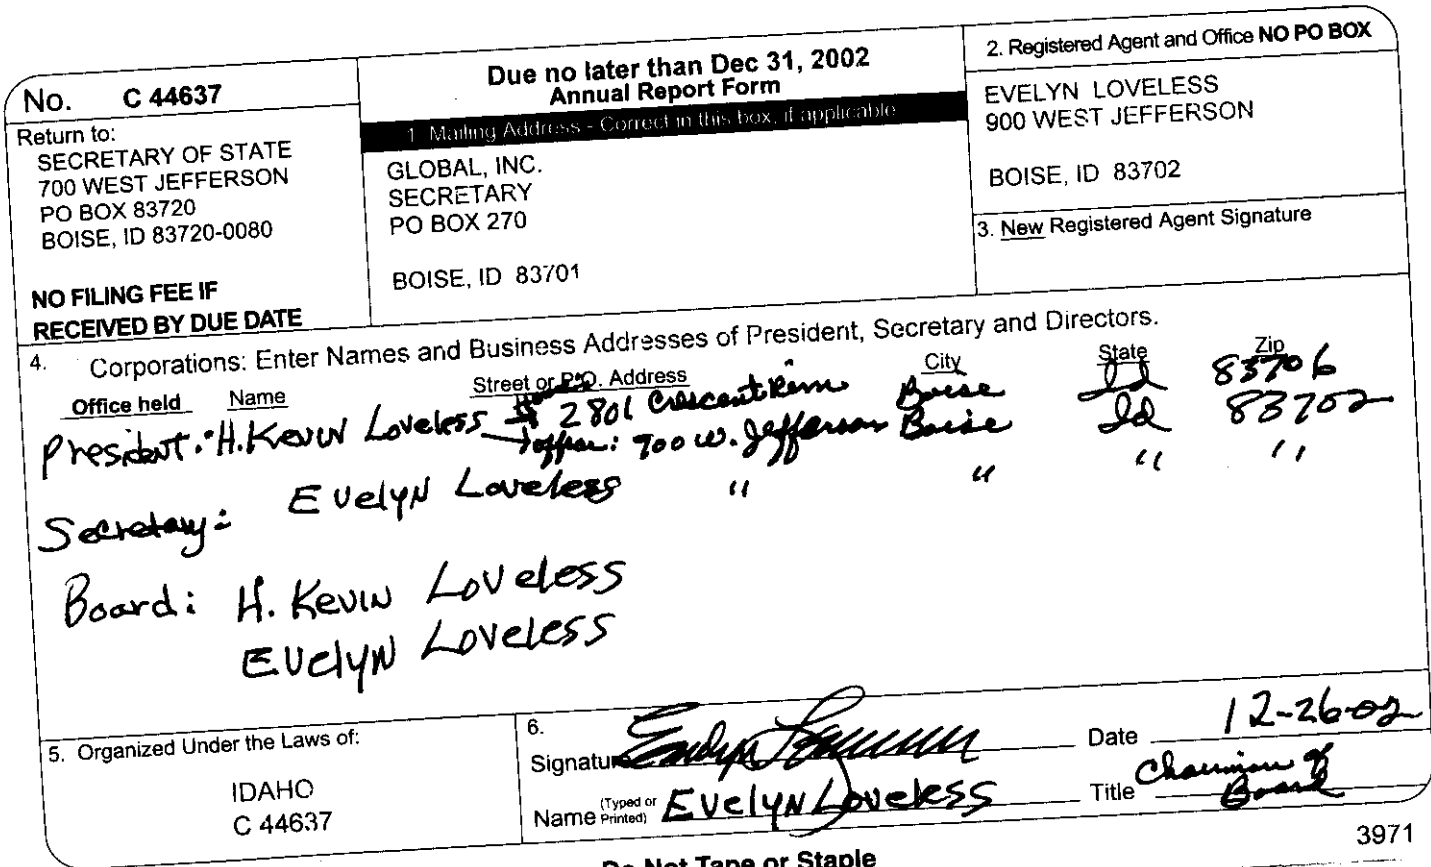 No. C 44637
Return to:
SECRETARY OF STATE
700 WEST JEFFERSON
PO BOX 83720
BOISE, ID 83720-0080
NO FILING FEE IF
RECEIVED BY DUE DATE
Due no later than Dec 31, 2002
Annual Report Form
1. Mailing Address - Correct in this box, if applicable
GLOBAL, INC.
SECRETARY
PO BOX 270
BOISE, ID 83701
2. Registered Agent and Office NO PO BOX
EVELYN LOVELESS
900 WEST JEFFERSON
BOISE, ID 83702
3. New Registered Agent Signature
4. Corporations: Enter Names and Business Addresses of President, Secretary and Directors.
Office held Name Street or P.O. Address City State Zip
President: H. Kevin Loveless 2801 Crescent Rim Boise Id 83706
office: 900 W. Jefferson Boise Id 83702
Secretary: Evelyn Loveless " " " "
Board: H. Kevin Loveless
Evelyn Loveless
5. Organized Under the Laws of:
IDAHO
C 44637
6.
Signature Evelyn Loveless Date 12-26-02
Name (Typed or Printed) Evelyn Loveless Title Chairman of Board
Do Not Tape or Staple
3971